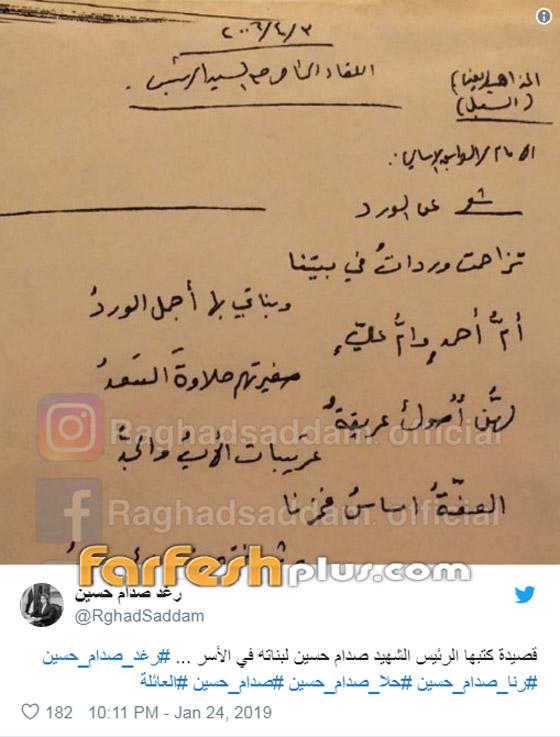 ٢٠٠٦/٤/٣
اللقاء
(السبل)
شعر عن الورد
تزاحمت ورداتُ في بيتنا
وبناتي لها أجمل الوردُ
أمُّ أحمدٍ وامُّ عليٍّ
صغيرتهم حلاوةَ السَعدُ
لهُنَّ أُصولُ عريقةُ
عَرَيبات الأبُ والجَدُّ
العفّةُ اساسُ فخرنا
Raghadsaddam official
Raghadsaddam official
farfeshplus.com
رغد صدام حسين
@RghadSaddam
قصيدة كتبها الرئيس الشهيد صدام حسين لبناته في الأسر ... #رغد_صدام_حسين
#رنا_صدام_حسين #حلا_صدام_حسين #صدام_حسين #العائلة
182 10:11 PM - Jan 24, 2019